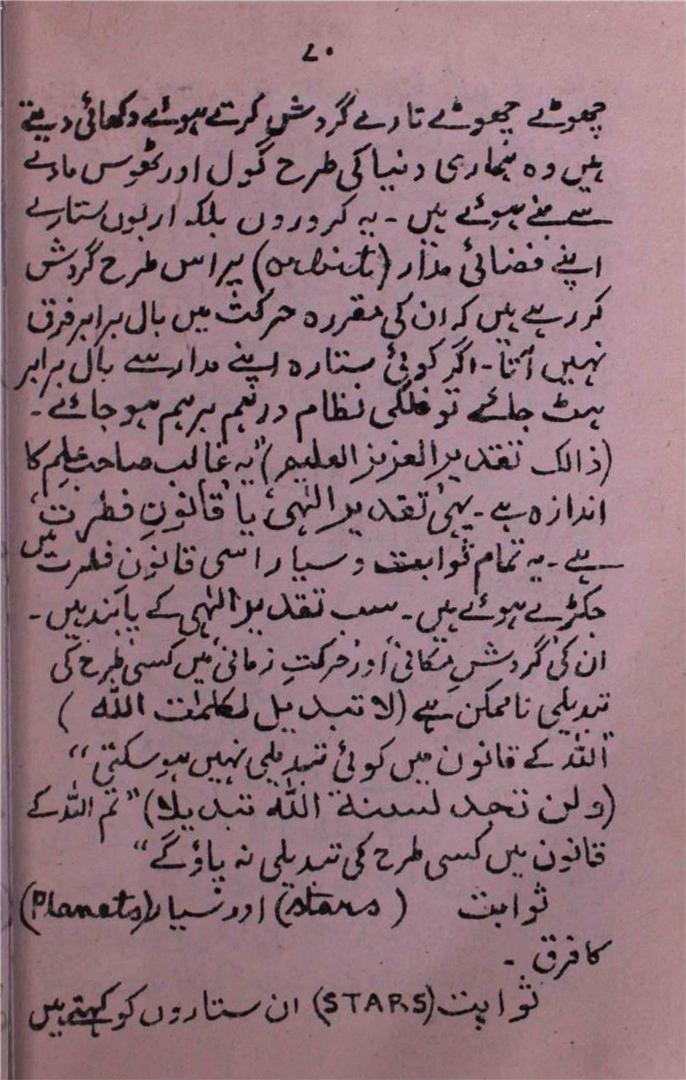 ۷۰
چھوٹے چھوٹے تارے گردش کرتے ہوئے دکھائی دیتے
ہیں وہ ہماری دنیا کی طرح گول اور ٹھوس مادے
سے بنے ہوئے ہیں ۔ یہ کروروں بلکہ اربوں ستارے
اپنے فضائی مدار (orbit) پر اس طرح گردش
کر رہے ہیں کہ ان کی مقررہ حرکت میں بال برابر فرق
نہیں آتا ۔ اگر کوئی ستارہ اپنے مدار سے بال برابر
ہٹ جائے تو فلکی نظام درہم برہم ہو جائے ۔
(ذالک تقدیر العزیز العلیم) "یہ غالب صاحب علم کا
اندازہ ہے ۔ یہی 'تقدیر الٰہی' یا 'قانونِ فطرت'
ہے ۔ یہ تمام ثوابت و سیار اسی قانون فطرت میں
جکڑے ہوئے ہیں ۔ سب تقدیر الٰہی کے پابند ہیں ۔
ان کی گردشِ مکانی اور حرکتِ زمانی میں کسی طرح کی
تبدیلی ناممکن ہے (لا تبدیل لکلمٰت اللہ )
"اللہ کے قانون میں کوئی تبدیلی نہیں ہو سکتی"
(ولن تجد لسنة اللہ تبدیلا) "تم اللہ کے
قانون میں کسی طرح کی تبدیلی نہ پاؤ گے"
ثوابت (stars) اور سیار (Planets)
کا فرق ۔
ثوابت (STARS) ان ستاروں کو کہتے ہیں